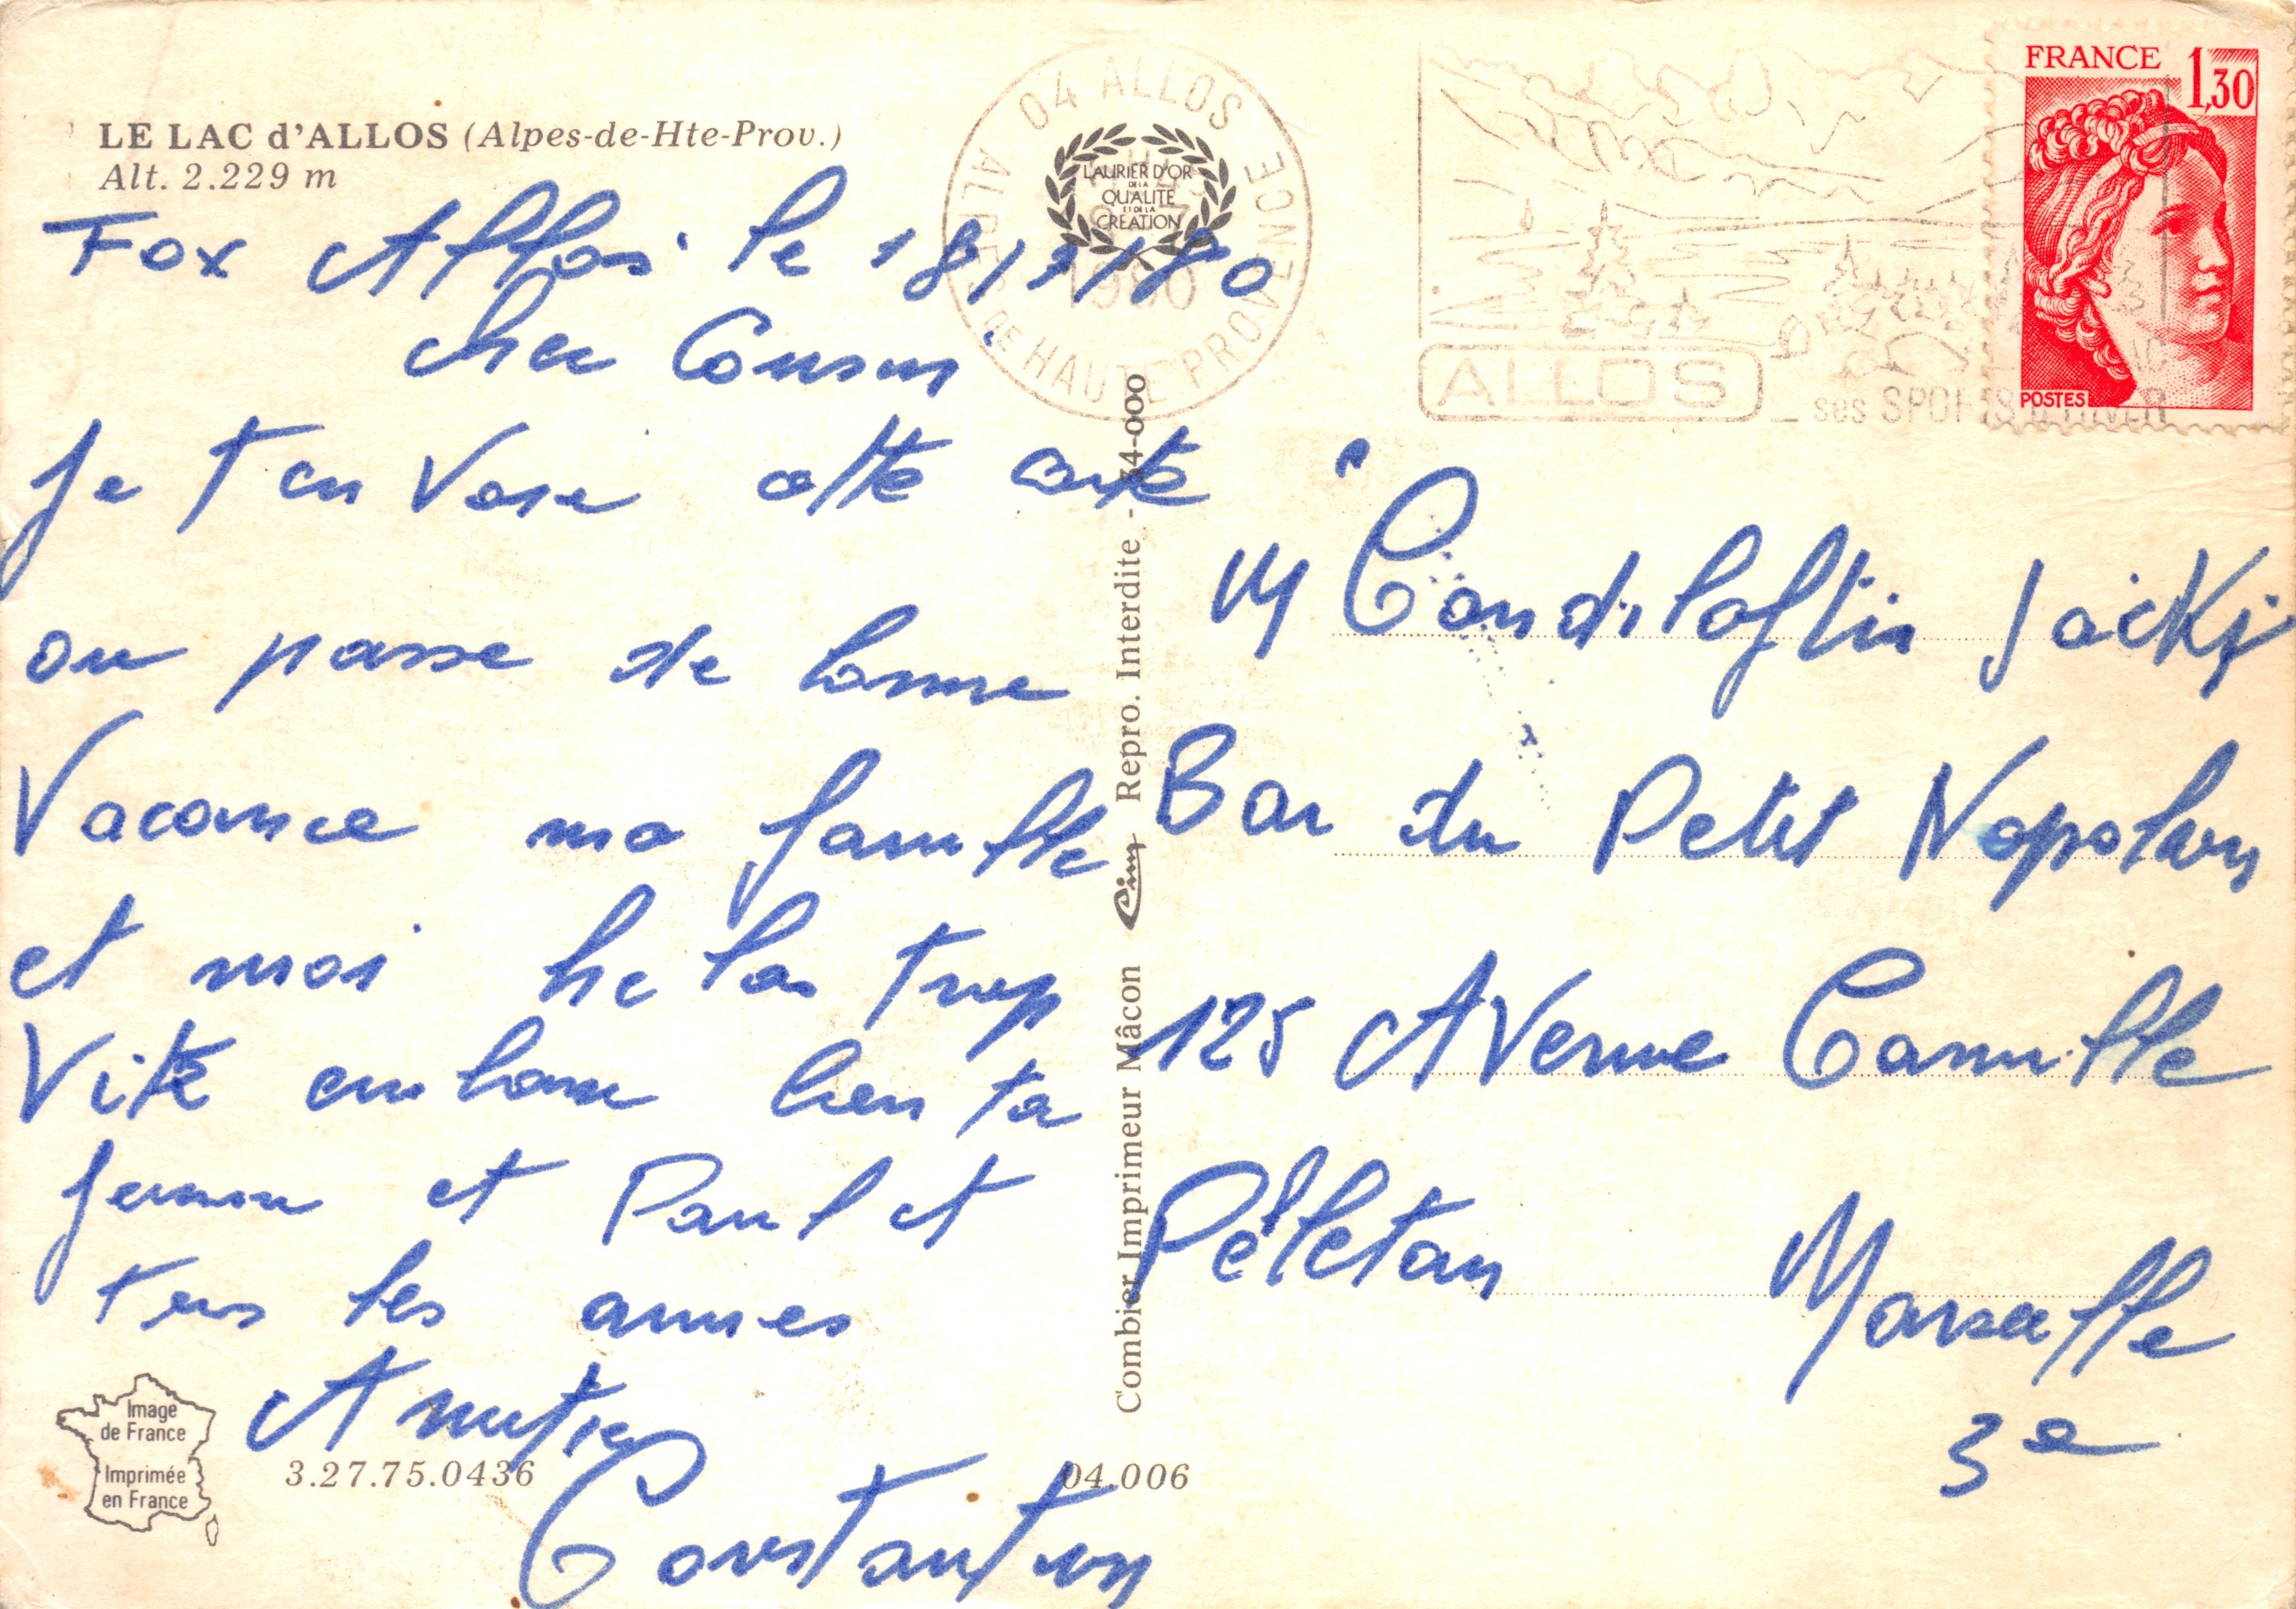 LE LAC d'ALLOS (Alpes-de-Hte-Prov.)
Alt. 2.229 m
Fox Allos le 18/7/80
cher Cousin
Je t'en Voie cette carte
on passe de bonne
Vacance ma famille
et moi he las trop
Vite embrasse bien ta
femme et Paul et
tous les amies
Amitie
Constantin
Image
de France
Imprimée
en France
3.27.75.0436
04.006
Combier Imprimeur Mâcon Cim Repro. Interdite. - 34-000
04 ALLOS
ALPES DE HAUTE PROVENCE
1980
LAURIER D'OR
DE LA
QUALITÉ
ET DE LA
CRÉATION
ALLOS
ses SPORTS D'HIVER
FRANCE 1,30
POSTES
M Jacky
Bar du Petit Napolon
125 AVenue Camille
Pélletan Marseille
3e